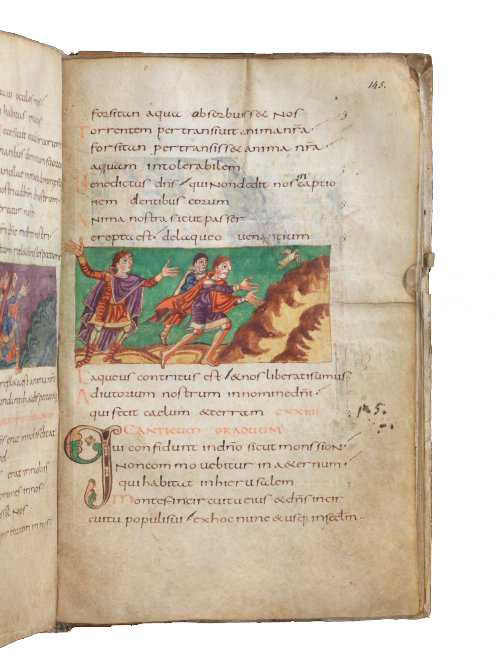 145.
forsitan aqua absorbuiss& nos
Torrentem pertransiuit anima nrã
forsitan pertransiss& anima nrã
aquam intolerabilem
Benedictus dns qui non dedit nos in captio
nem dentibus eorum
Anima nostra sicut passer
erepta est de laqueo uenantium
Laqueus contritus est & nos liberati sumus
Adiutorium nostrum in nomine dni
qui fecit caelum & terram CXXIIII
145.
CANTICUM GRADUUM
Qui confidunt in dno sicut mons sion
Non commouebitur in aeternum
qui habitat in hierusalem
Montes in circuitu eius & dns in cir
cuitu populi sui ex hoc nunc & usq; in sclm